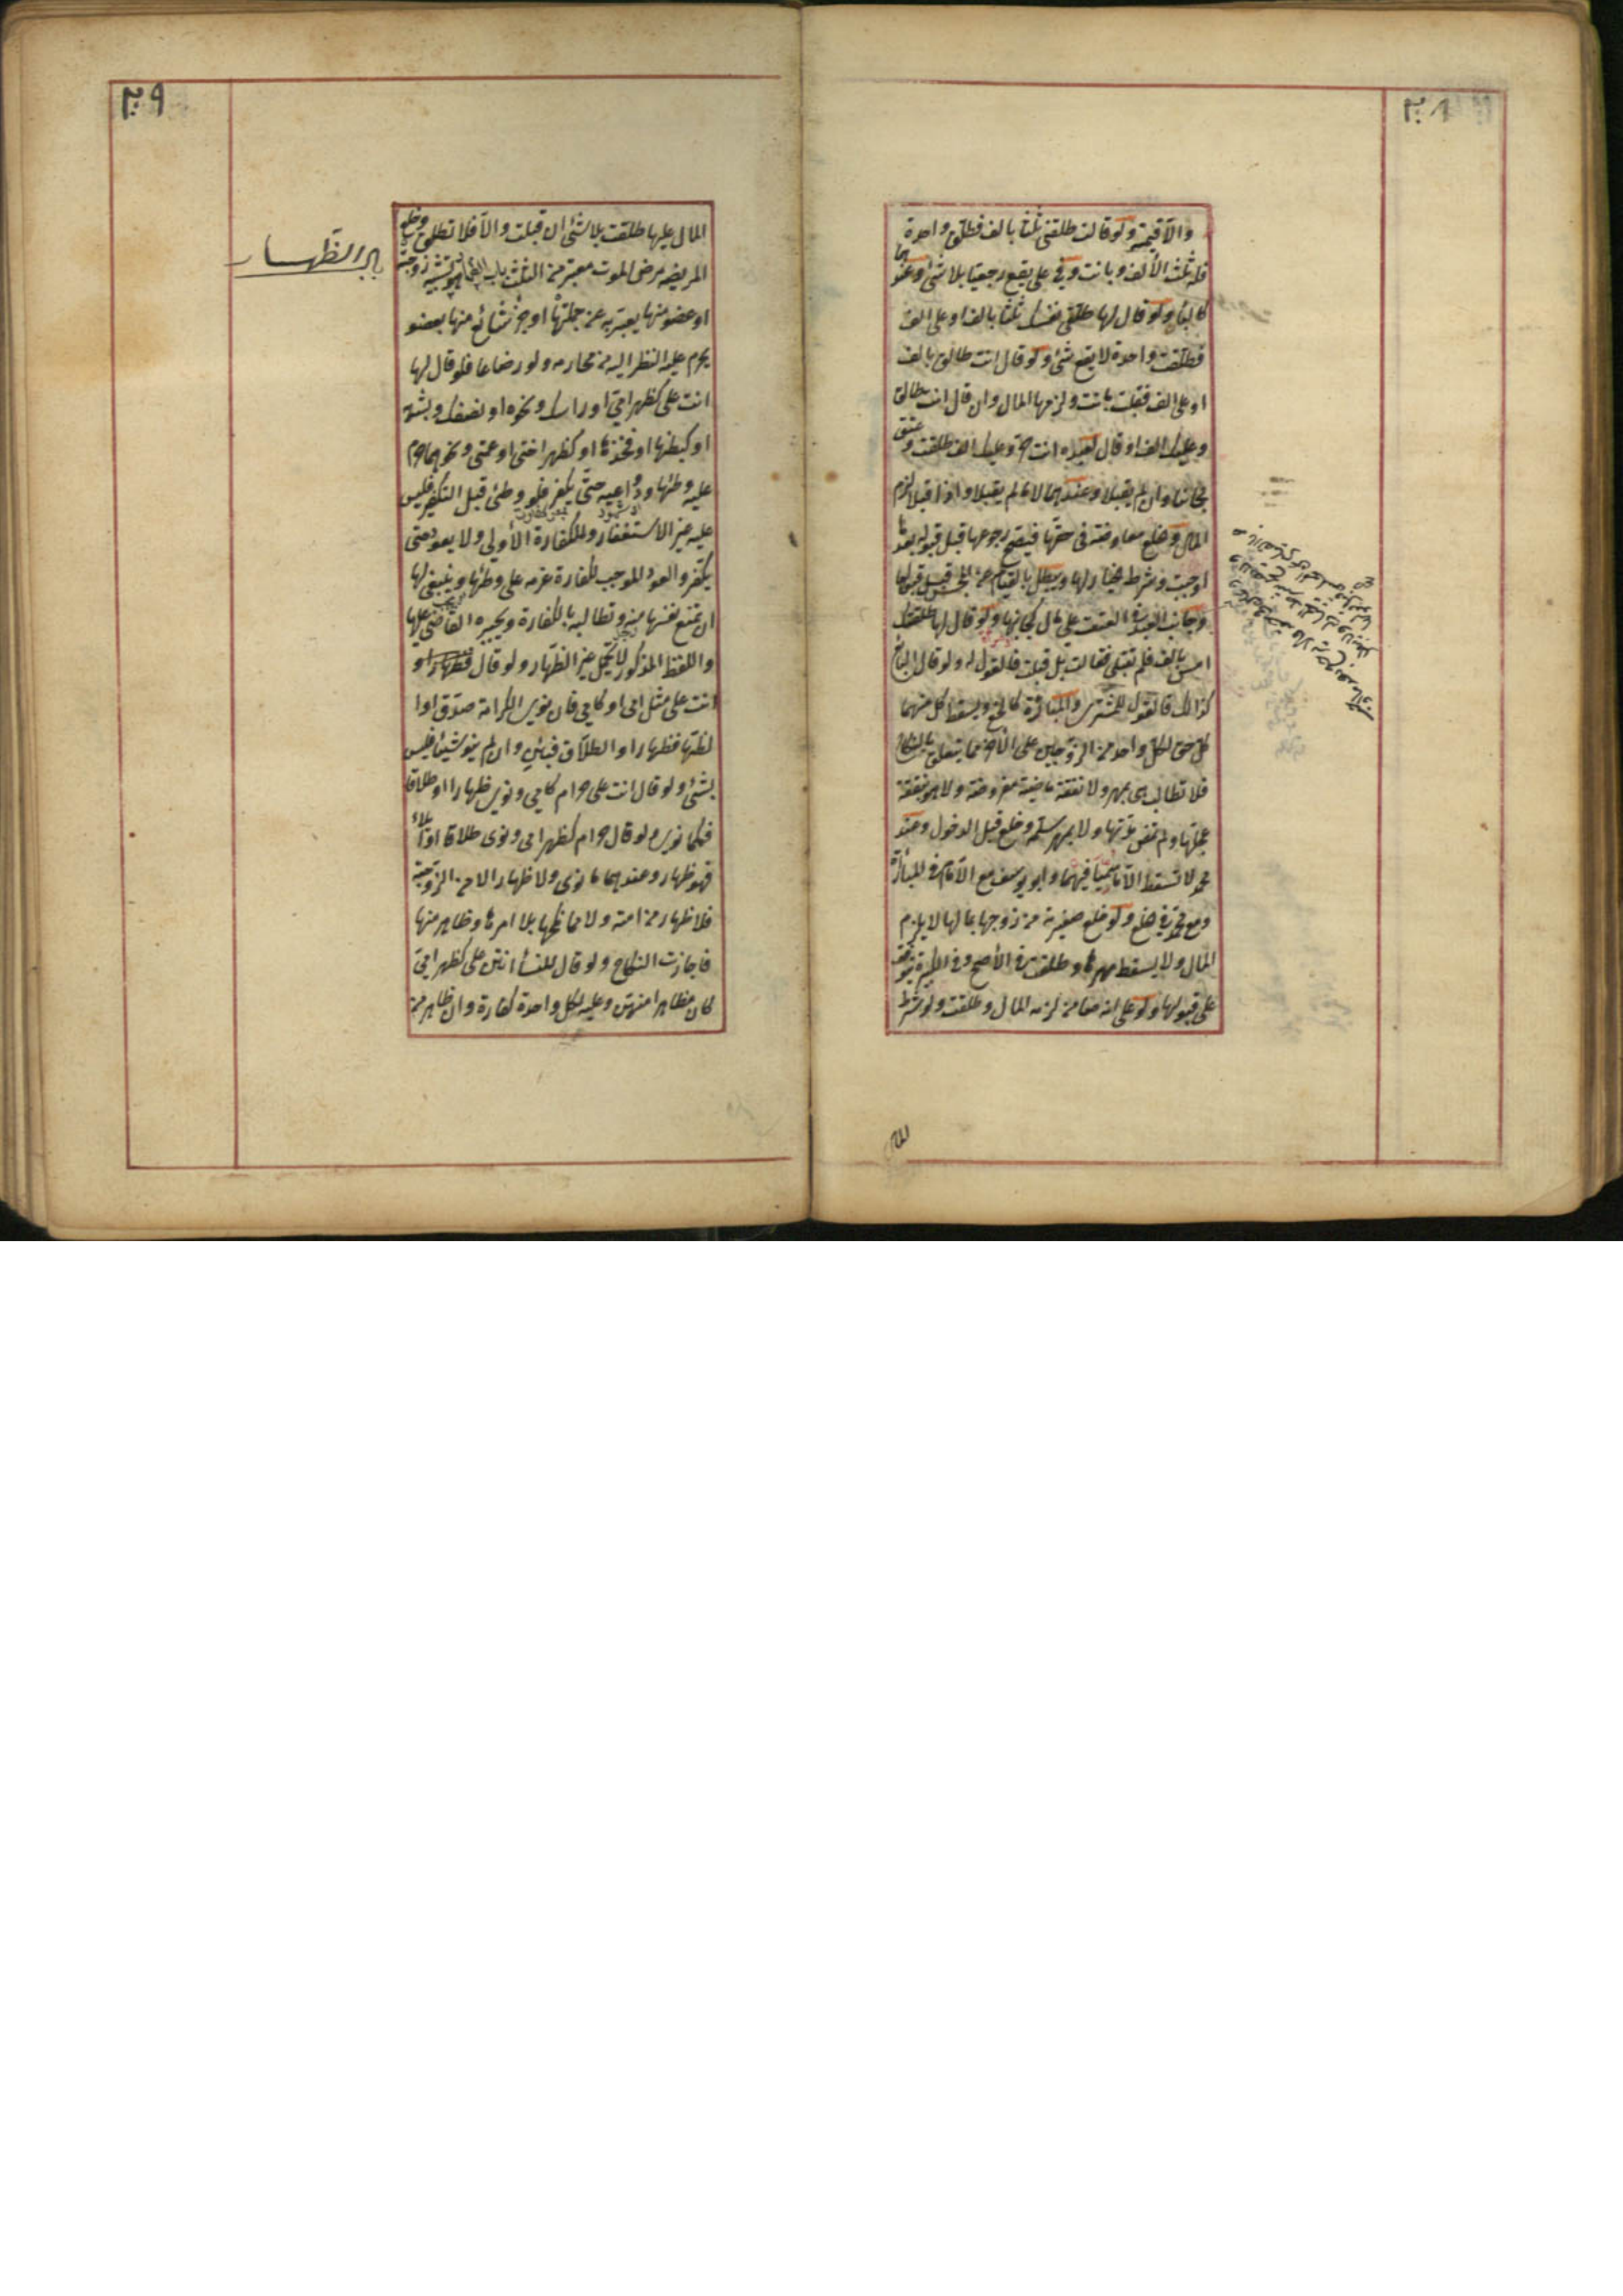 ٢٠٨
والا قيمته ولو قالت طلقني ثلثا بالف فطلق واحدة
فله ثلث الألف وبانت وفي على يقع رجعيا بلا شئ وعندهما
كالباء ولو قال لها طلقي نفسك ثلثا بالف او على الف
فطلقت واحدة لا يقع شئ ولو قال انت طالق بالف
او على الف فقبلت بانت ولزمها المال وان قال انت طالق
وعليك الف او قال لعبده انت حر وعليك الف طلقت وعتق
مجانا وان لم يقبلا وعندهما لا ما لم يقبلا واذا قبلا لزم
المال والخلع معاوضة في حقها فيصح رجوعها قبل قبوله بعد ما
اوجبت وشرط الخيار لها ويبطل بالقيام عن المجلس قبل قبولها
وجانب العبد في العتق على مال كجانبها ولو قال لها طلقتك
امس بالف فلم تقبلي فقالت بل قبلت فالقول له ولو قال البائع
كذلك فالقول للمشتري والمبارأة كالخلع ويسقط كل منهما
كل حق لكل واحد من الزوجين على الآخر مما يتعلق بالنكاح
فلا تطالب هي بمهر ولا نفقة ماضية مفروضة ولا هو بنفقة
عجلها ولم تمض مدتها ولا بمهر سلمه وخلع قبل الدخول وعند
محمد لا تسقط الا ما سميا فيهما وابو يوسف مع الامام في المبارأة
ومع محمد في خلع ولو خلع صغيرته من زوجها بمالها لا يلزم
المال ولا يسقط مهرها وطلقت في الأصح وفي الكبيرة يتوقف
على قبولها ولو على انه ضامن لزمه المال وطلقت ولو شرط
المال
٢٠٩
باب الظهار
المال عليها طلقت بلا شئ ان قبلت والا فلا تطلق وخلع
المريضة مرض الموت معتبر من الثلث باب الظهار هو تشبيه زوجته
او عضو منها يعبر به عن جملتها او جزء شائع منها بعضو
يحرم عليه النظر اليه من محارمه ولو رضاعا فلو قال لها
انت على كظهر امي او راسك ونحوه او نصفك وبشبهه
او كبطنها او فخذها او كظهر اختي او عمتي ونحوهما حرم
عليه وطئها ودواعيه حتى يكفر فلو وطئ قبل التكفير فليس
عليه غير الاستغفار والكفارة الأولى ولا يعود حتى
يكفر والعود الموجب للكفارة عزمه على وطئها وينبغي لها
ان تمنع نفسها منه وتطالبه بالكفارة ويجبره القاضي عليها
واللفظ المذكور لا يحتمل غير الظهار ولو قال
انت على مثل امي او كامي فان نوى الكرامة صدق او
الظهار فظهار او الطلاق فبائن وان لم ينو شيئا فليس
بشئ ولو قال انت على حرام كامي ونوى ظهارا او طلاقا
فكما نوى ولو قال حرام كظهر امي ونوى طلاقا او ايلاء
فهو ظهار وعندهما ما نوى ولا ظهار الا من الزوجة
فلا ظهار من امته ولا مما نكحها بلا امرها وظاهر منها
فاجازت النكاح ولو قال للنسأ انتن على كظهر امي
كان مظاهرا منهن وعليه لكل واحدة كفارة وان ظاهر من